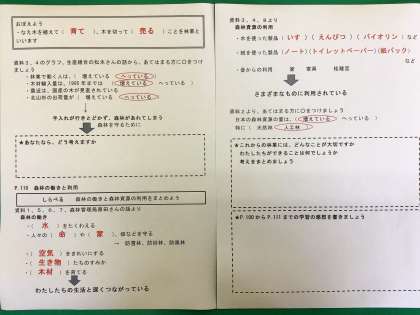 おぼえよう
・なえ木を植えて（ 育て ）、木を切って（ 売る ）ことを林業と
いいます
資料3、4のグラフ、生産組合の松本さんの話から、あてはまる方に○をつけましょう
・林業で働く人は、（ 増えている へっている ）
・木材輸入量は、1960年までは（ 増えている へっている ）
・最近は、国産の木が見直されている
・北山杉の出荷量が（ 増えている へっている ）
↓
手入れが行きとどかず、森林があれてしまう
森林を守るために
★あなたなら、どう考えますか
P.110 森林の働きと利用
しらべる 森林の働きと森林資源の利用をまとめよう
資料1、5、6、7、森林管理局原田さんの話より
森林の働き
・（ 水 ）をたくわえる
・人々の（ 命 ）や（ 家 ）、畑などを守る
→ 防雪林、防砂林、防風林
・（ 空気 ）をきれいにする
・（ 生き物 ）たちのすみか
・（ 木材 ）を育てる
↓
わたしたちの生活と深くつながっている
資料3、4、8より
森林資源の利用
・木を使った製品（いす）（えんぴつ）（バイオリン）など
・紙を使った製品（ノート）（トイレットペーパー）（紙パック）
など
・昔からの利用 家 家具
↓
さまざまなものに利用されている
資料2より、あてはまる方に○をつけましょう
日本の森林資源の量は、（ 増えている へっている ）
特に（ 天然林 人工林 ）
★これからの林業には、どんなことが大切ですか
わたしたちができることは何でしょうか
考えをまとめましょう
★P.100からP.111までの学習の感想を書きましょう